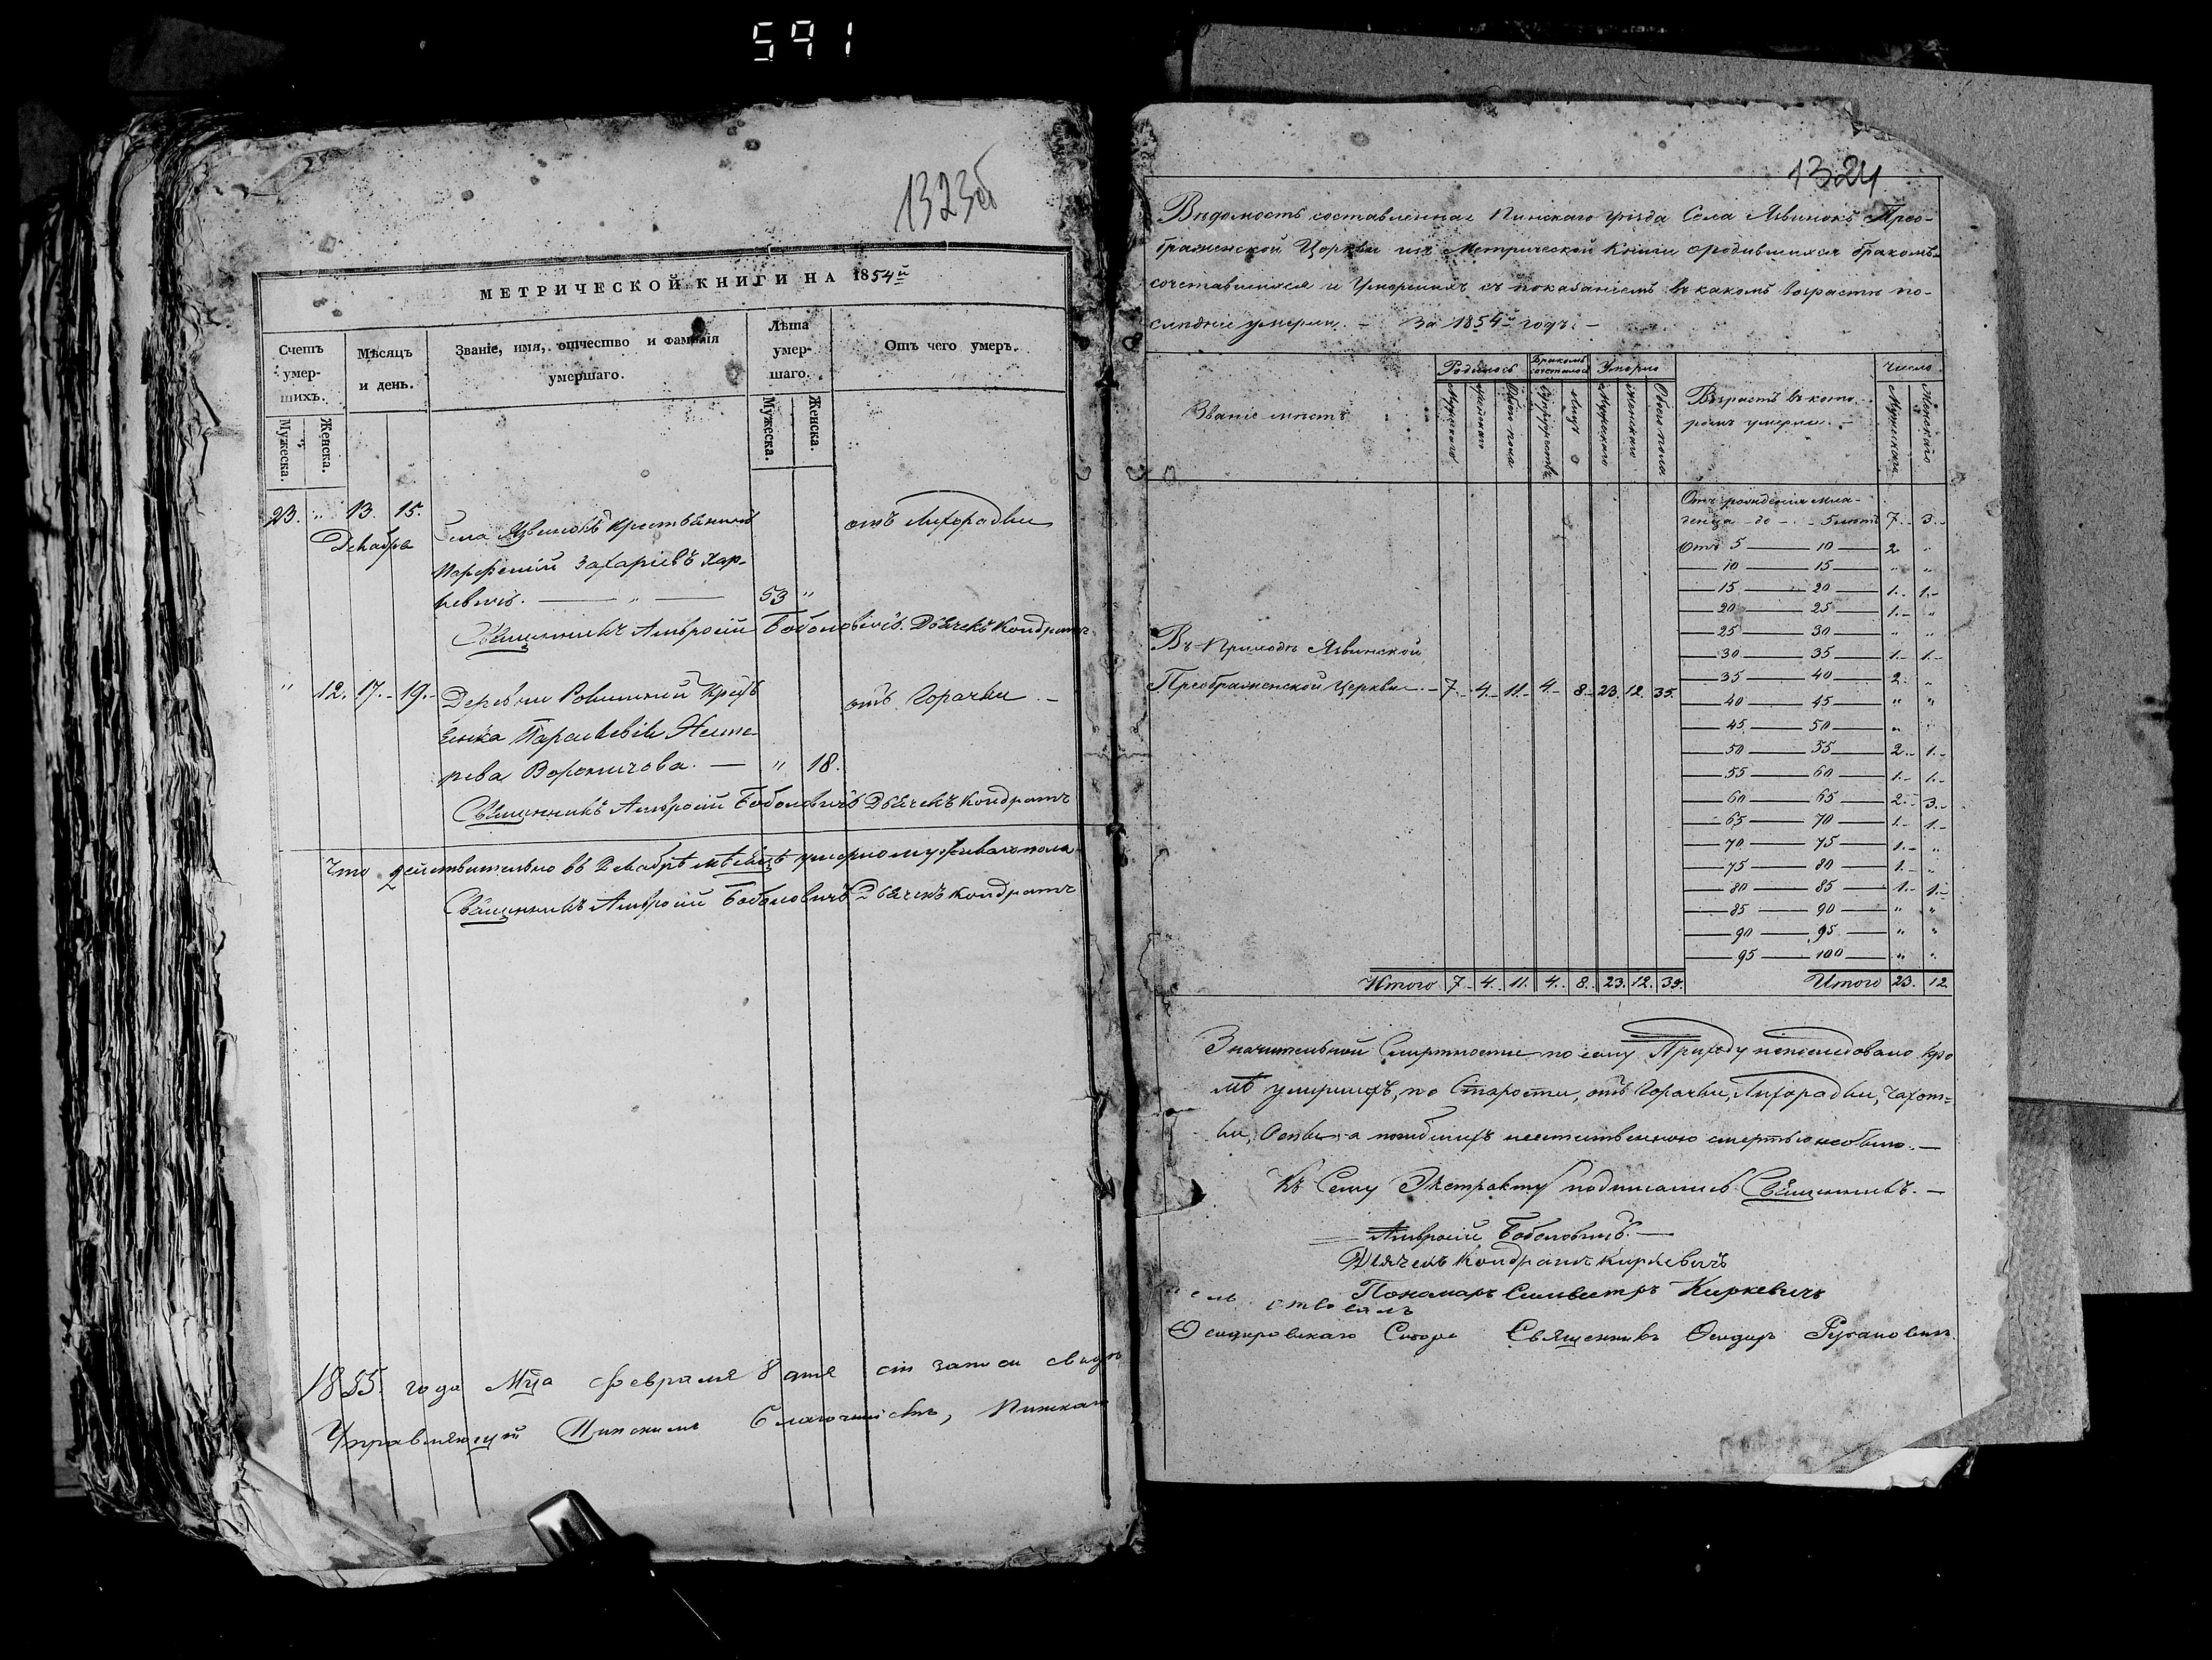 591
1323об
МЕТРИЧЕСКОЙ КНИГИ НА 1854й
Счетъ умер- шихъ.
Мѣсяцъ и день.
Званіе, имя, отчество и фамилія умершаго.
Лѣта умер- шаго.
Отъ чего умеръ.
Мужеска. Женска. Мужеска. Женска.
23. " 13. 15. Села Язвинокъ Крестьянинъ отъ Лихорадки
Декабря
Парфеній Захаріевъ Хар-
кевичъ. — " — 53 "
Священникъ Амвросій Боболовичъ. Дьячекъ Кондратъ
" 12. 17. 19. Деревни
отъ Горячки. —
енка Параскевія Несте-
рева — " 18.
Священникъ Амвросій Боболовичъ Дьячекъ Кондратъ
Что действительно въ Декабрѣ мѣсяцѣ
Священникъ Амвросій Боболовичъ Дьячекъ Кондратъ
1855 года Мца Февраля 8 дня сіи записи свидѣ
Управляющій Пинскимъ Благочиніемъ, Пинскаго
1324
Вѣдомость составленная Пинскаго уѣзда Села Язвинокъ Прео-
браженской Церкви изъ Метрической Книги ородившихся бракомъ-
сочетавшихся и Умершихъ съ показаніемъ въ какомъ возрастѣ по-
слѣдніе умерли. — За 1854й годъ. —
Званіе мѣстъ
Родилось
Бракомъ сочеталось
Умерло
Возрастъ въ кото-
ромъ умерли. —
Число
Мужескаго Женскаго Обоего пола Супружествъ Лицъ Мужескаго Женскаго Обоего пола Мужескаго Женскаго
Отъ рожденія мла-
денца до — 5 лѣтъ 7. 3.
Отъ 5 — 10 — 2. "
— 10 — 15 — " "
— 15 — 20 — 1. 1.
— 20 — 25 — 1. "
— 25 — 30 — " "
— 30 — 35 — 1. 1.
— 35 — 40 — 2. "
— 40 — 45 — " "
— 45 — 50 — " "
— 50 — 55 — 2. 1.
— 55 — 60 — 1. 1.
— 60 — 65 — 2. 3.
— 65 — 70 — 1. 1.
— 70 — 75 — 1. "
— 75 — 80 — 1. "
— 80 — 85 — 1. 1.
— 85 — 90 — " "
— 90 — 95 — " "
— 95 — 100 — " "
Въ Приходѣ Язвинской
Преображенской Церкви. — 7. 4. 11. 4. 8. 23. 12. 35.
Итого 7. 4. 11. 4. 8. 23. 12. 35. Итого 23. 12
Значительной Смертности по сему Приходу непоследовало кро
мѣ умершихъ, по Старости, отъ Горячки, Лихорадки, Чахот=
ки, Оспы, а погибшихъ неестественною смертью небыло. —
Къ Сему Экстракту подписались Священникъ. —
Амвросій Боболовичъ. —
Дьячекъ Кондратъ Киркевичъ
Пономарь Сильвестръ Киркевичъ
тельствовалъ
Священникъ